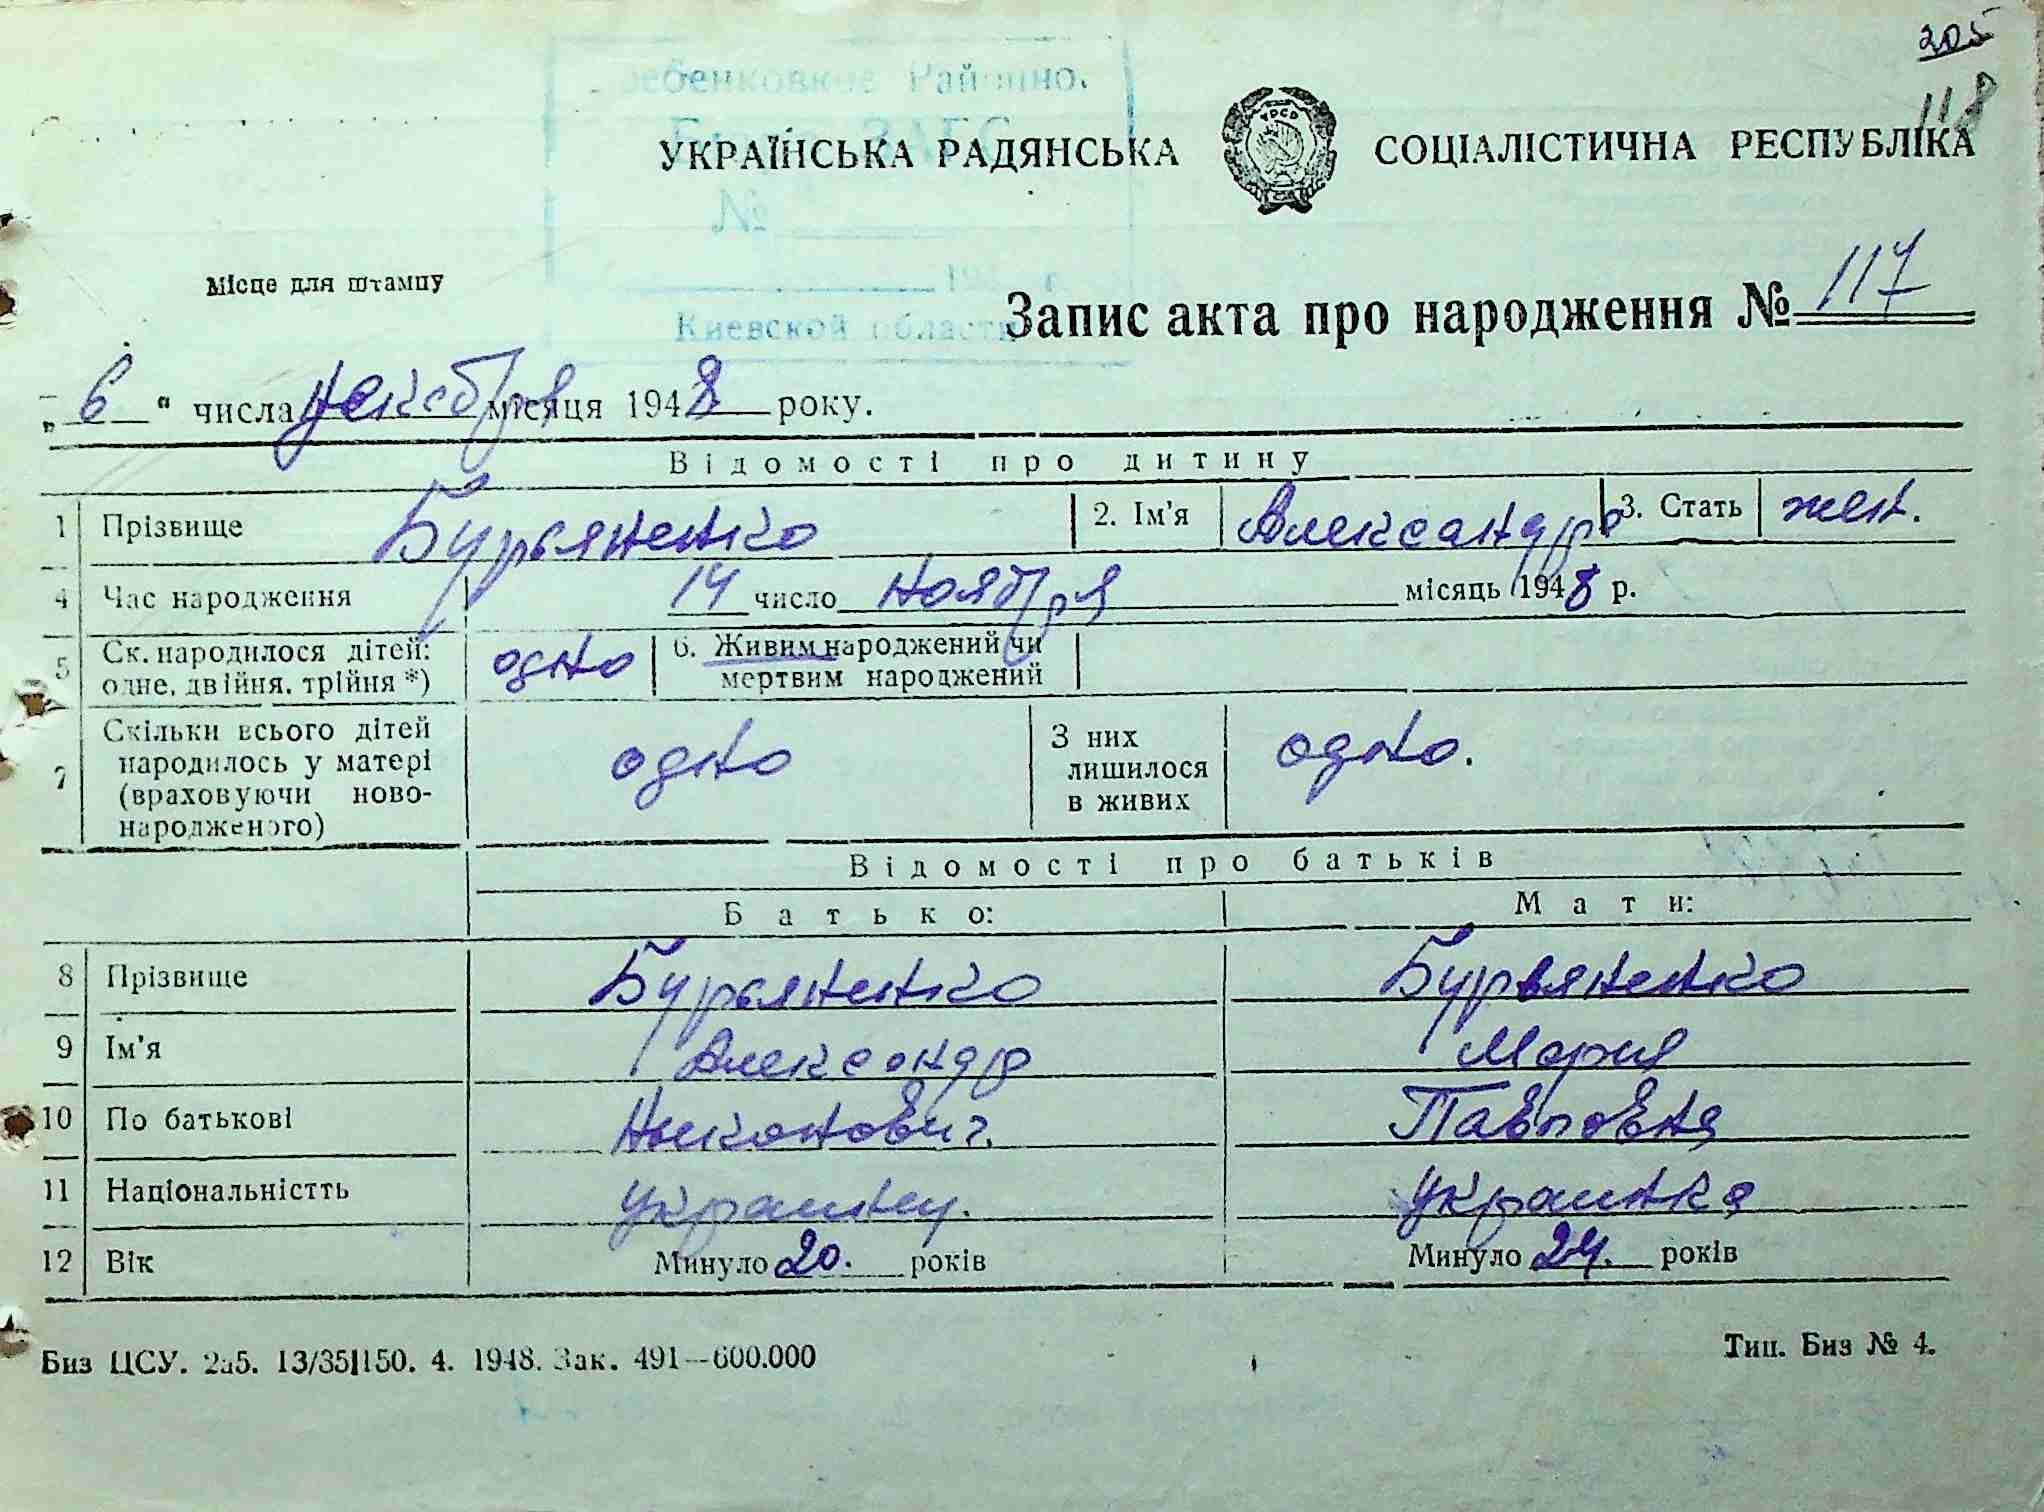 205
118
Районно.
ЗАГС
УКРАЇНСЬКА РАДЯНСЬКА СОЦІАЛІСТИЧНА РЕСПУБЛІКА
УРСР
№
Місце для штампу
194 г.
Киевской области
Запис акта про народження № 117
„6“ числа декабря місяця 1948 року.
Відомості про дитину
1 Прізвище Бурьяненко 2. Ім'я Александра 3. Стать жен.
4 Час народження 14 число ноября місяць 1948 р.
5 Ск. народилося дітей: одно 6. Живим народжений чи
одне, двійня, трійня *) мертвим народжений
7 Скільки всього дітей народилось у матері (враховуючи ново-народженого) одно З них лишилося в живих одно.
Відомості про батьків
Батько: Мати:
8 Прізвище Бурьяненко Бурьяненко
9 Ім'я Александр Мария
10 По батькові Никонович. Павловна
11 Національністть украинец. украинка
12 Вік Минуло 20. років Минуло 24. років
Биз ЦСУ. 2а5. 13/35|150. 4. 1948. Зак. 491—600.000 Тип. Биз № 4.